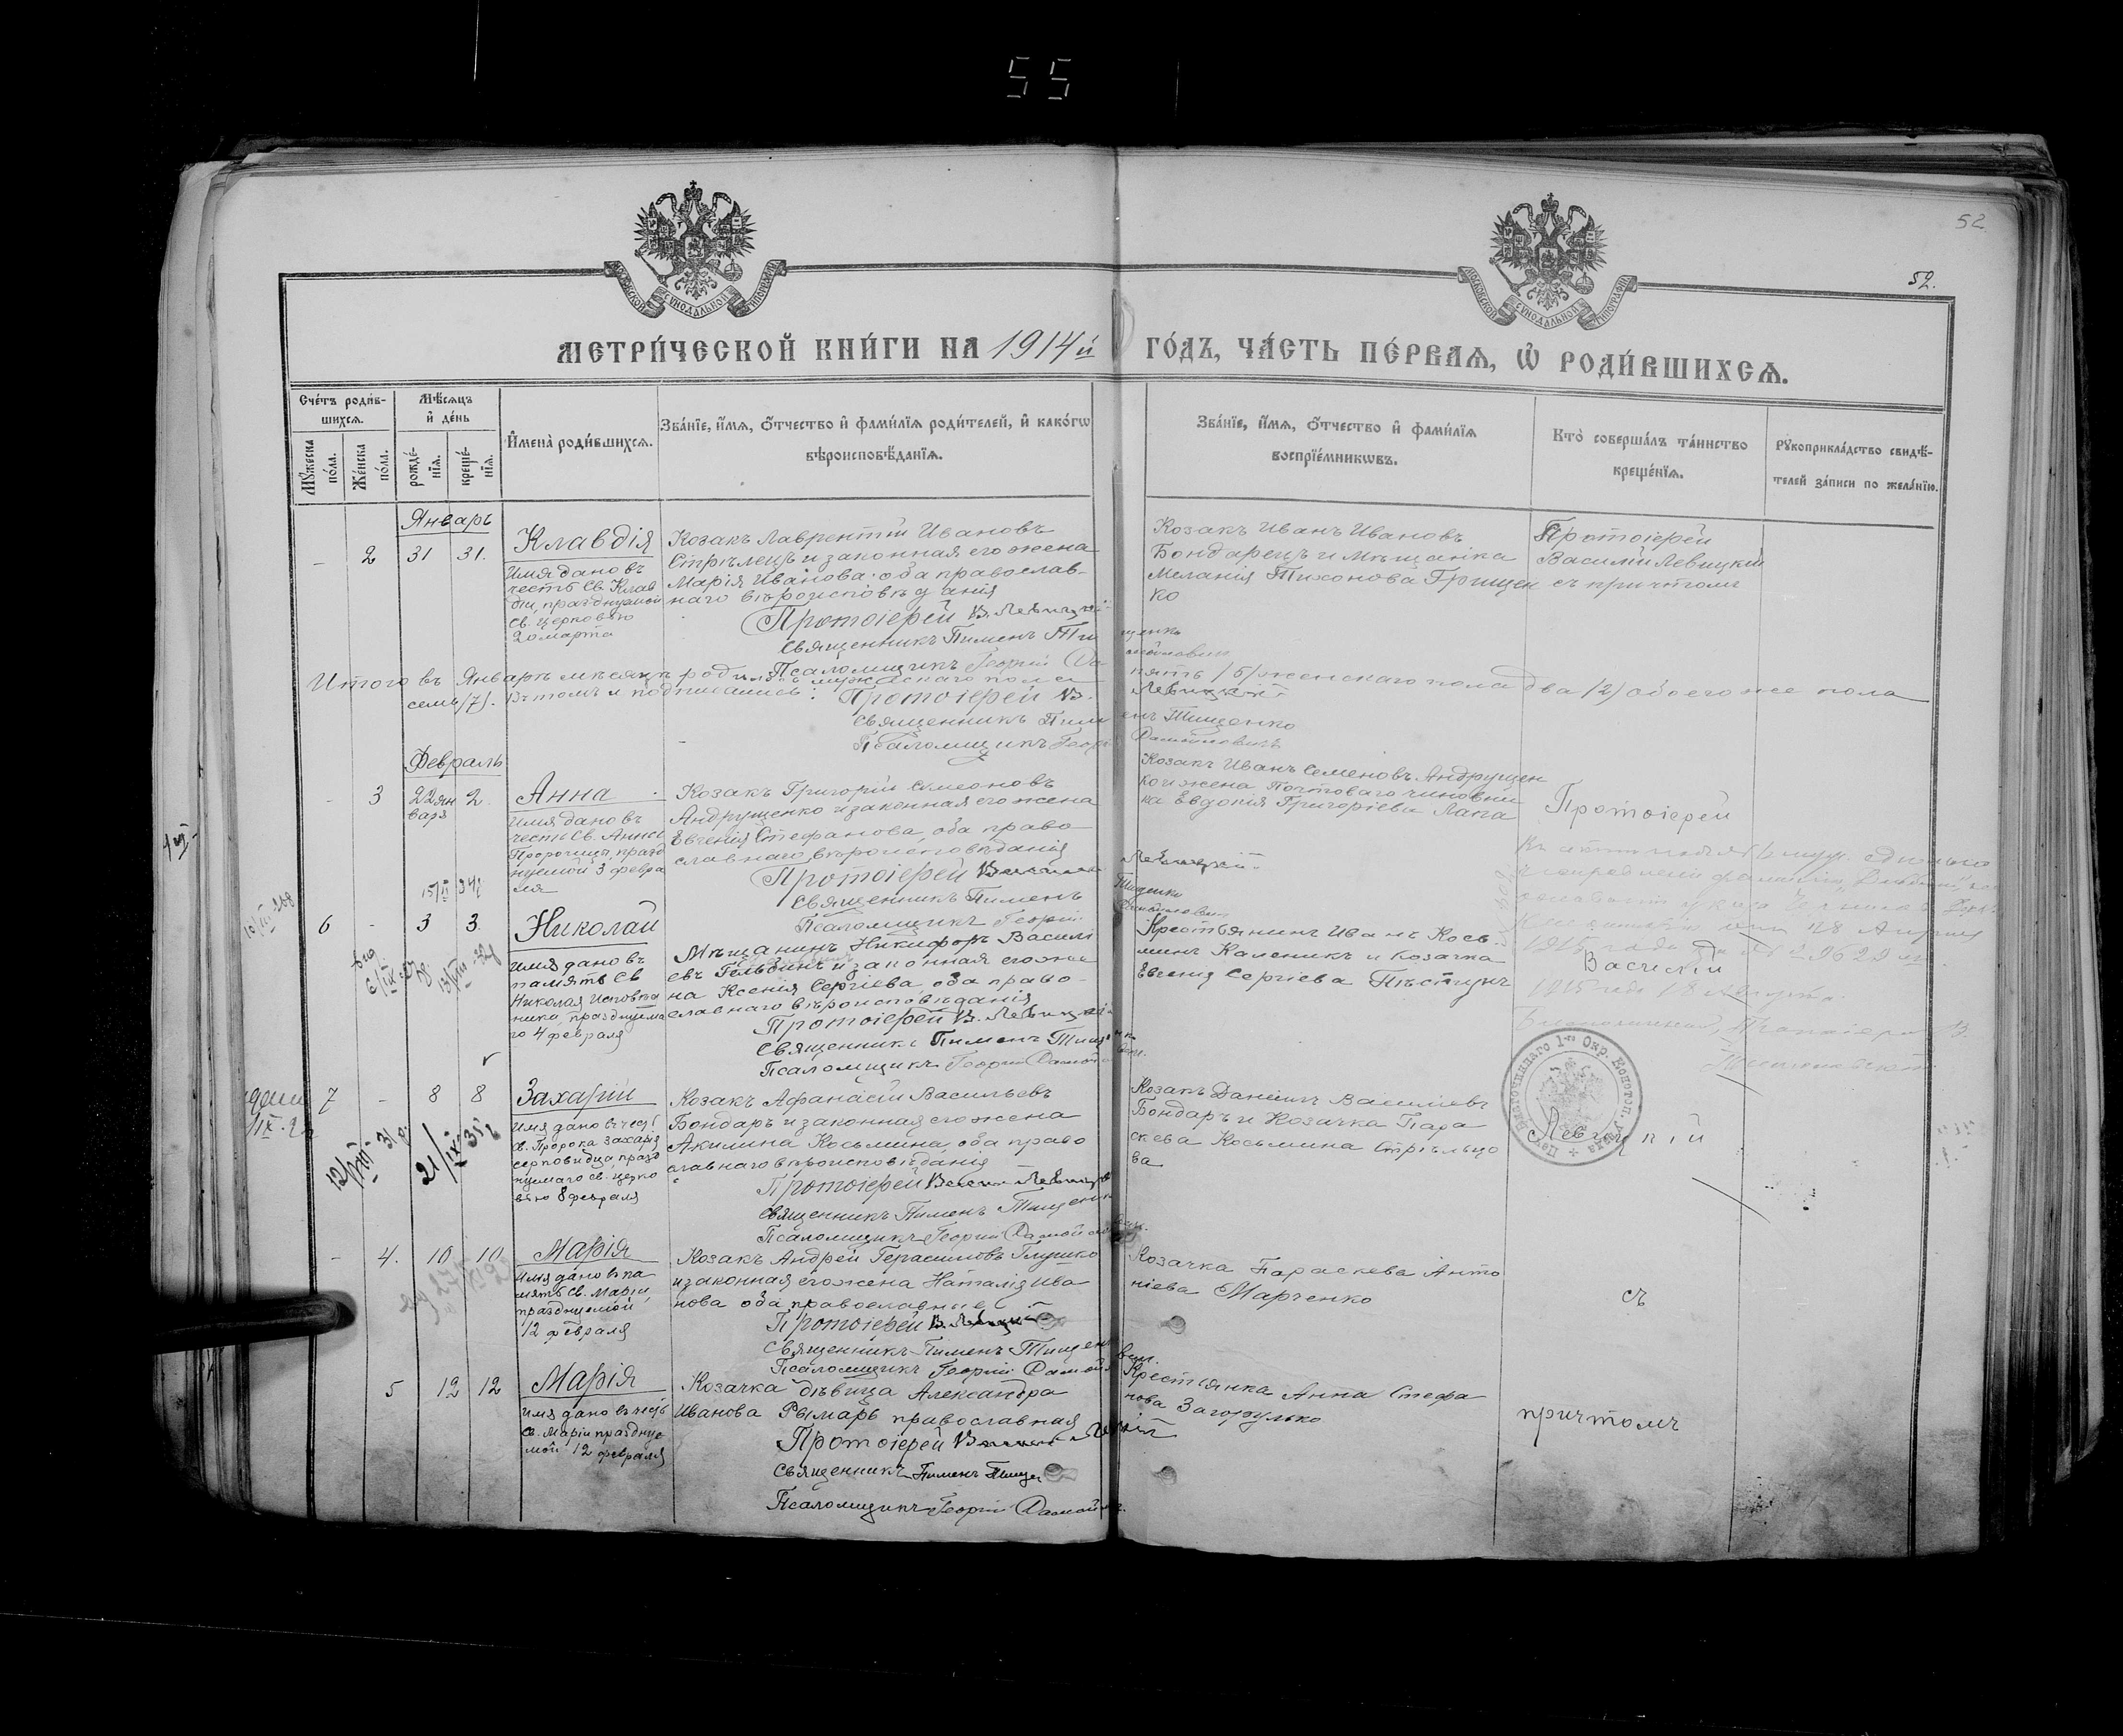 55
52
52.
МОСКОВСКОЙ СѴНОДАЛЬНОЙ ТИПОГРАФІИ
МОСКОВСКОЙ СѴНОДАЛЬНОЙ ТИПОГРАФІИ
МЕТРИ́ЧЕСКОЙ КНИ́ГИ НА 1914й ГО́ДЪ, ЧА́СТЬ ПЕ́РВАѦ, Ѡ҆ РОДИ́ВШИХСѦ.
Сче́тъ роди́в-
шихсѧ.
Мꙋ́жеска по́ла.
Же́нска по́ла.
Мѣ́сѧцъ и҆ де́нь
рожде́-нїѧ.
креще́-нїѧ.
И҆мена̀ роди́вшихсѧ.
Зва́нїе, и҆́мѧ, ѻ҆́тчество и҆ фами́лїѧ роди́телей, и҆ како́гѡ
вѣроисповѣ́данїѧ.
Зва́нїе, и҆́мѧ, ѻ҆́тчество и҆ фами́лїѧ
воспрїе́мникѡвъ.
Кто̀ соверша́лъ та́инство
креще́нїѧ.
Рꙋкоприкла́дство свидѣ́-
телей за́писи по жела́нїю.
Январь
- 2 31 31.
Клавдія
Имя дано въ
честь Св. Клав
діи, празднуемой
Св. церковью
20 марта
Козакъ Лаврентій Ивановъ
Стрѣлецъ и законная его жена
Марія Иванова, оба православ-
наго вѣроисповѣданія
Протоіерей В. Левицкій
Священникъ Пименъ Тищенко
Псаломщикъ Георгій
Козакъ Иванъ Ивановъ
Бондарецъ и Мѣщанка
Меланія Тихонова Грищен
ко
Протоіерей
Василій Левицкій
съ причтомъ
Итого въ Январѣ мѣсяцѣ родилось мужескаго пола пять /5/ женскаго пола два /2/ обоего же пола
семь /7/. Въ томъ и подписались: Протоіерей В. Левицкій
Священникъ Пименъ Тищенко
Псаломщикъ Георгій
Февраль
- 3 22 ян
варя 2
Анна
Имя дано въ
честь Св. Анны
Пророчицы, празд
нуемой 3 февра
ля
Козакъ Григорій Симеоновъ
Андрущенко и законная его жена
Евгенія Стефанова, оба право
славнаго вѣроисповѣданія
Протоіерей Василій Левицкій
Священникъ Пименъ Тищенко
Псаломщикъ Георгій
Козакъ Иванъ Семеновъ Андрущен
ко и жена Почтоваго чиновни
ка Евдокія Григоріева Лапа
Протоіерей
6 - 3 3.
Николай
Имя дано въ
память Св
Николая Исповѣд
ника, празднуема
го 4 февраля
Мѣщанинъ Никифоръ Василі
евъ Гельбинъ и законная его же
на Ксенія Сергіева, оба право
славнаго вѣроисповѣданія
Протоіерей В. Левицкій
Священникъ Пименъ Тищенко
Псаломщикъ Георгій
Крестьянинъ Иванъ Кось
минъ Каленикъ и козачка
Евгенія Сергіева Пѣстунъ
Василій
7 - 8 8
Захарій
Имя дано въ честь
Св. Пророка Захарія
серповидца празд
нуемаго св. церко
вью 8 февраля
Козакъ Афанасій Васильевъ
Бондарь и законная его жена
Акилина Косьмина, оба право
славнаго вѣроисповѣданія
Протоіерей Василій Левицкій
Священникъ Пименъ Тищенко
Псаломщикъ Георгій
Козакъ Даніилъ Василіевъ
Бондарь и Козачка Пара
скева Косьмина Стрѣльцо
ва
Левицкій
- 4. 10 10
Марія
Имя дано въ па
мять Св. Маріи,
празднуемой
12 февраля
Козакъ Андрей Герасимовъ Глушко
и законная его жена Наталія Ива
нова оба православные
Протоіерей В. Левицкій
Священникъ Пименъ Тищенко
Псаломщикъ Георгій
Козачка Параскева Анто
ніева Марченко
съ
5 12 12
Марія
Имя дано въ честь
Св. Маріи праздну
мой 12 февраля
Козачка дѣвица Александра
Иванова Рымарь православная
Протоіерей Василій Левицкій
Священникъ Пименъ Тищенко
Псаломщикъ Георгій
Крестьянка Анна Стефа
нова Загорулько
причтомъ